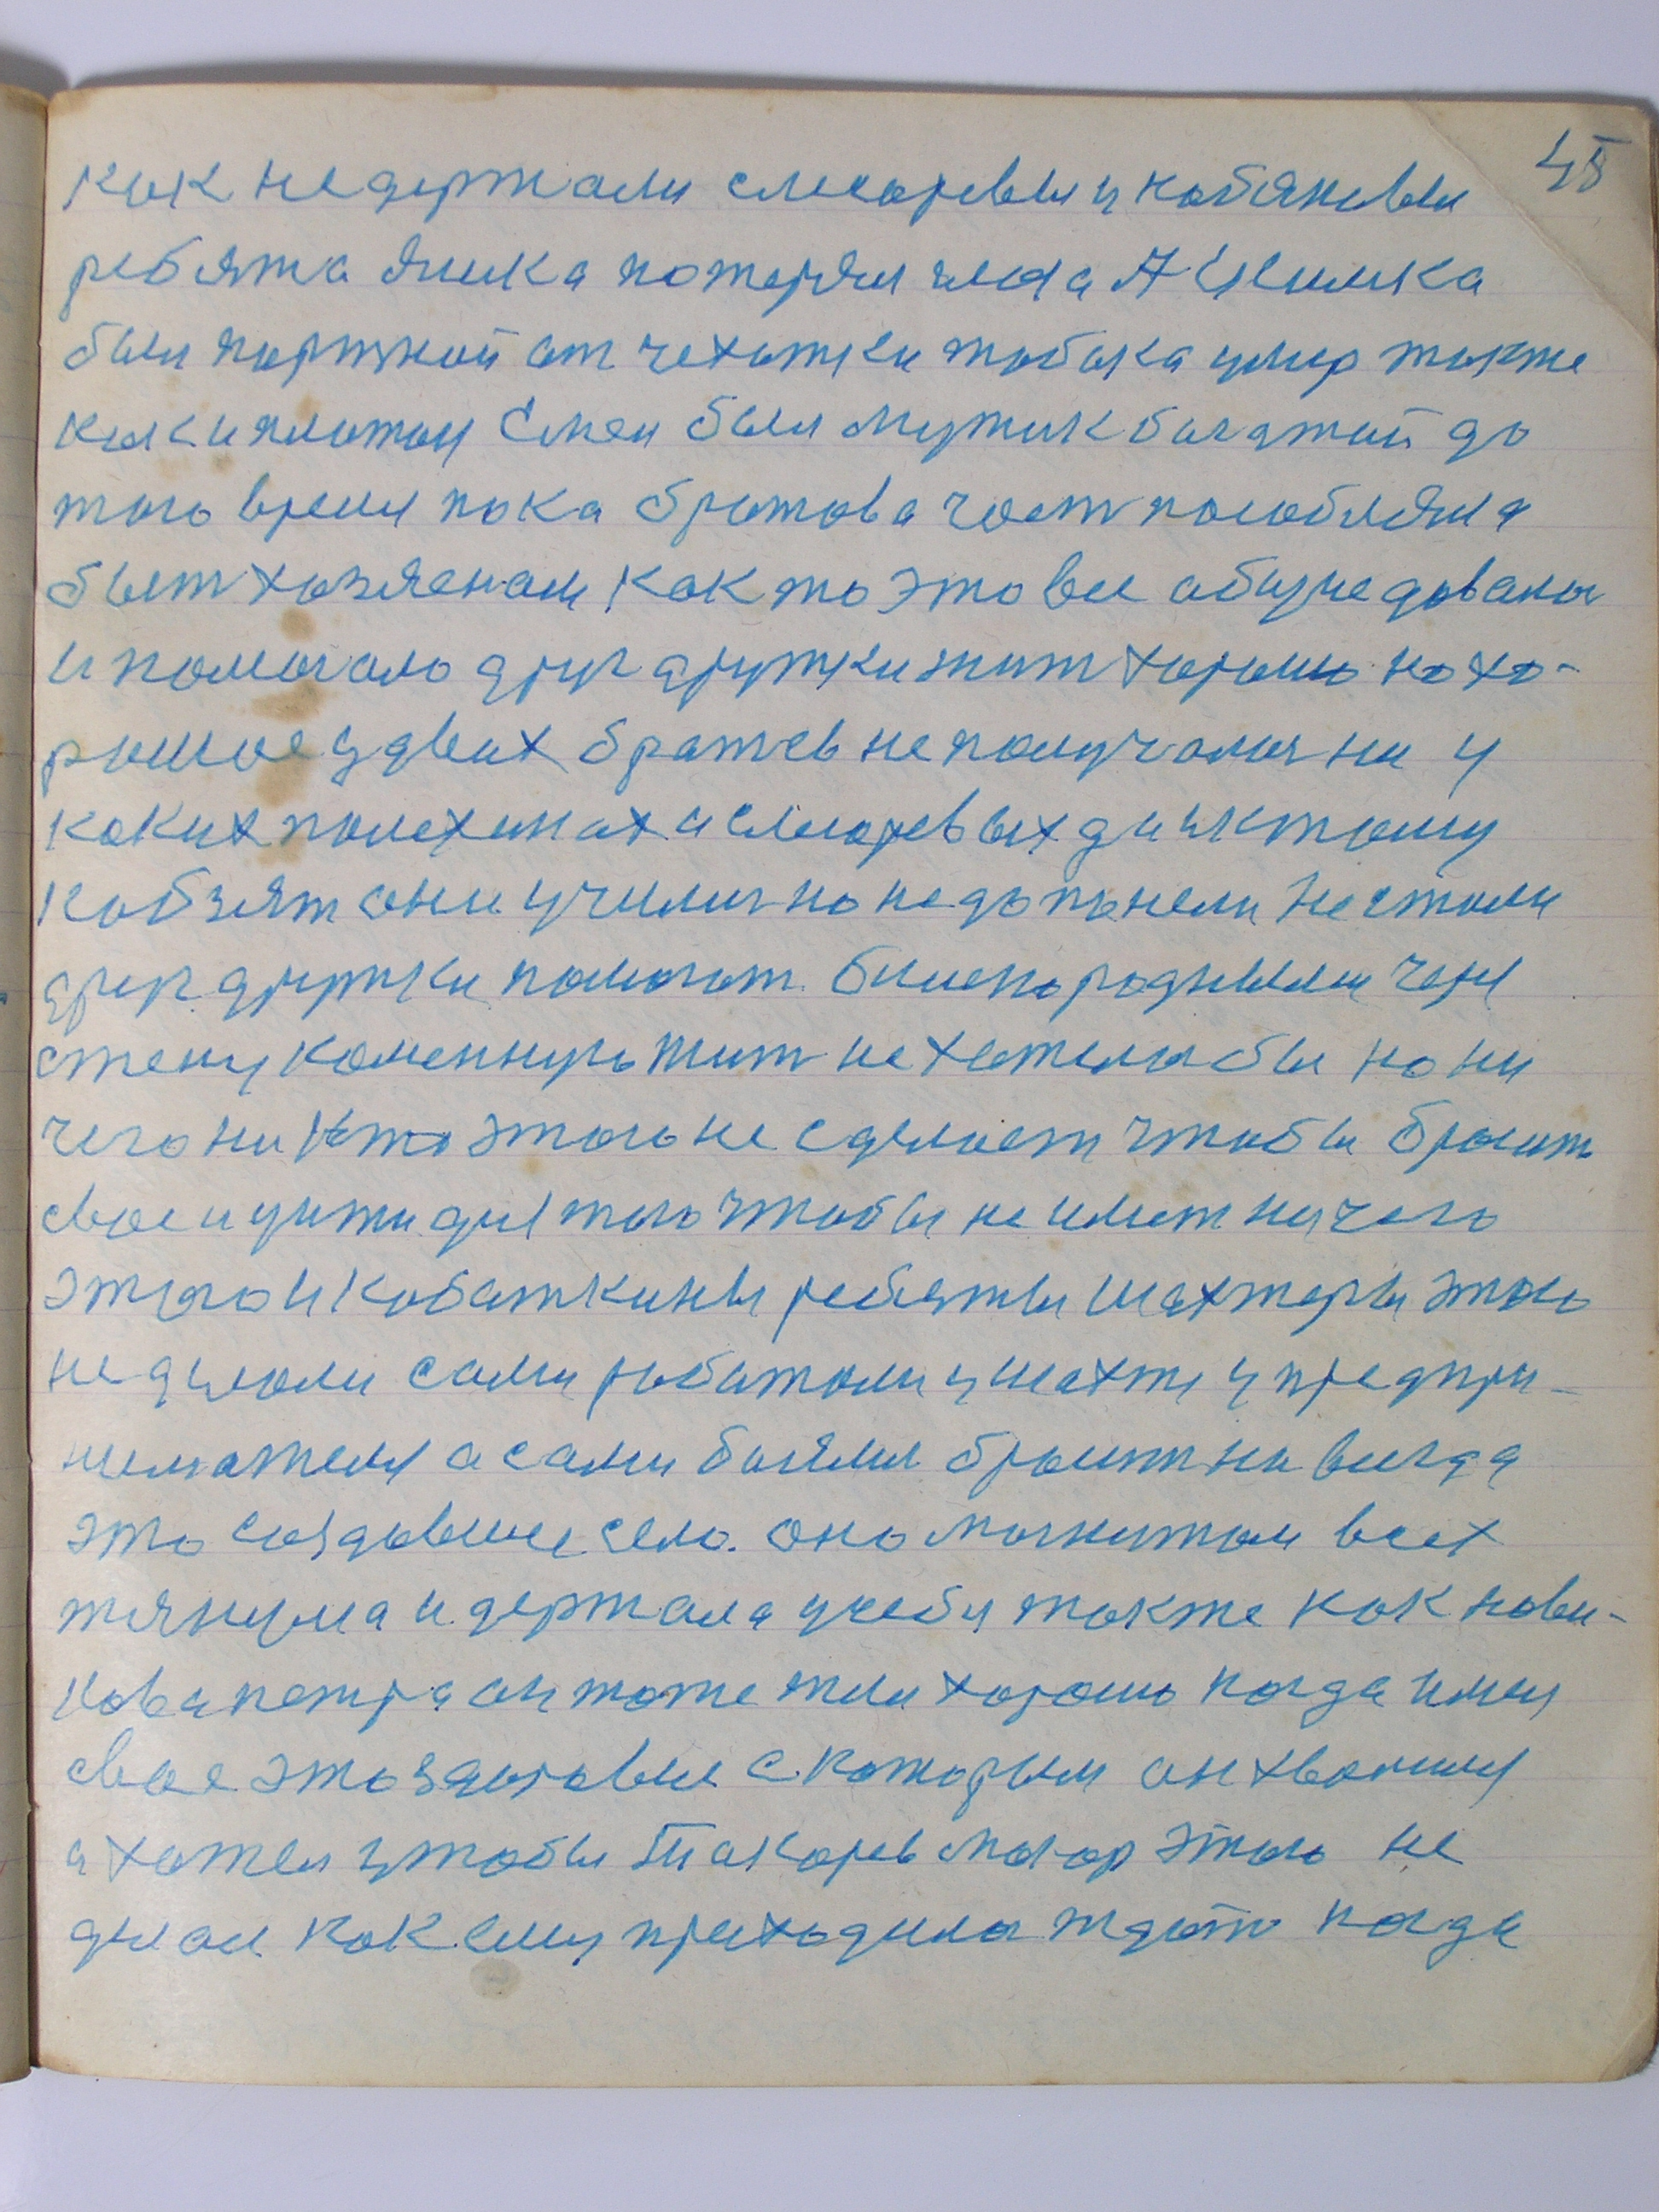 45
как недержали слесоревы и кобяковы
ребята яшка потерял глаза А Илюшка
был портной от чехотки табака умер также
как и платон Семён был мужик багатай до
того время пока братова част пособляла
быт хозяенам как то это все абızуедавалы
и помогало друг дружки жит хорошо но хо-
рошое у двих братев не получалоя ни у
каких полехинах и слесоревых да и к тому
кобзят они училиь но не до поняли не стали
друг дружки помогат бине породнилы черя
стену коменную жит не хотела бы но ни
чего ни кто этого не сделает чтобы бросит
свое и уити для того чтобы не имет ничего
этого и кобаткины ребяты шахтеры этого
не делали сами работали у шахте у предпри-
нимателя а сами боялис бросит на всегда
это создавшие село. оно могнитом всех
тянула и держала у себя также как нови-
кова петра он тоже жил хорошо когда имел
свое это здоровие с которым он хвалился
а хотел чтобы Токорев макар этого не
делал как ему приходилоь ждать когда